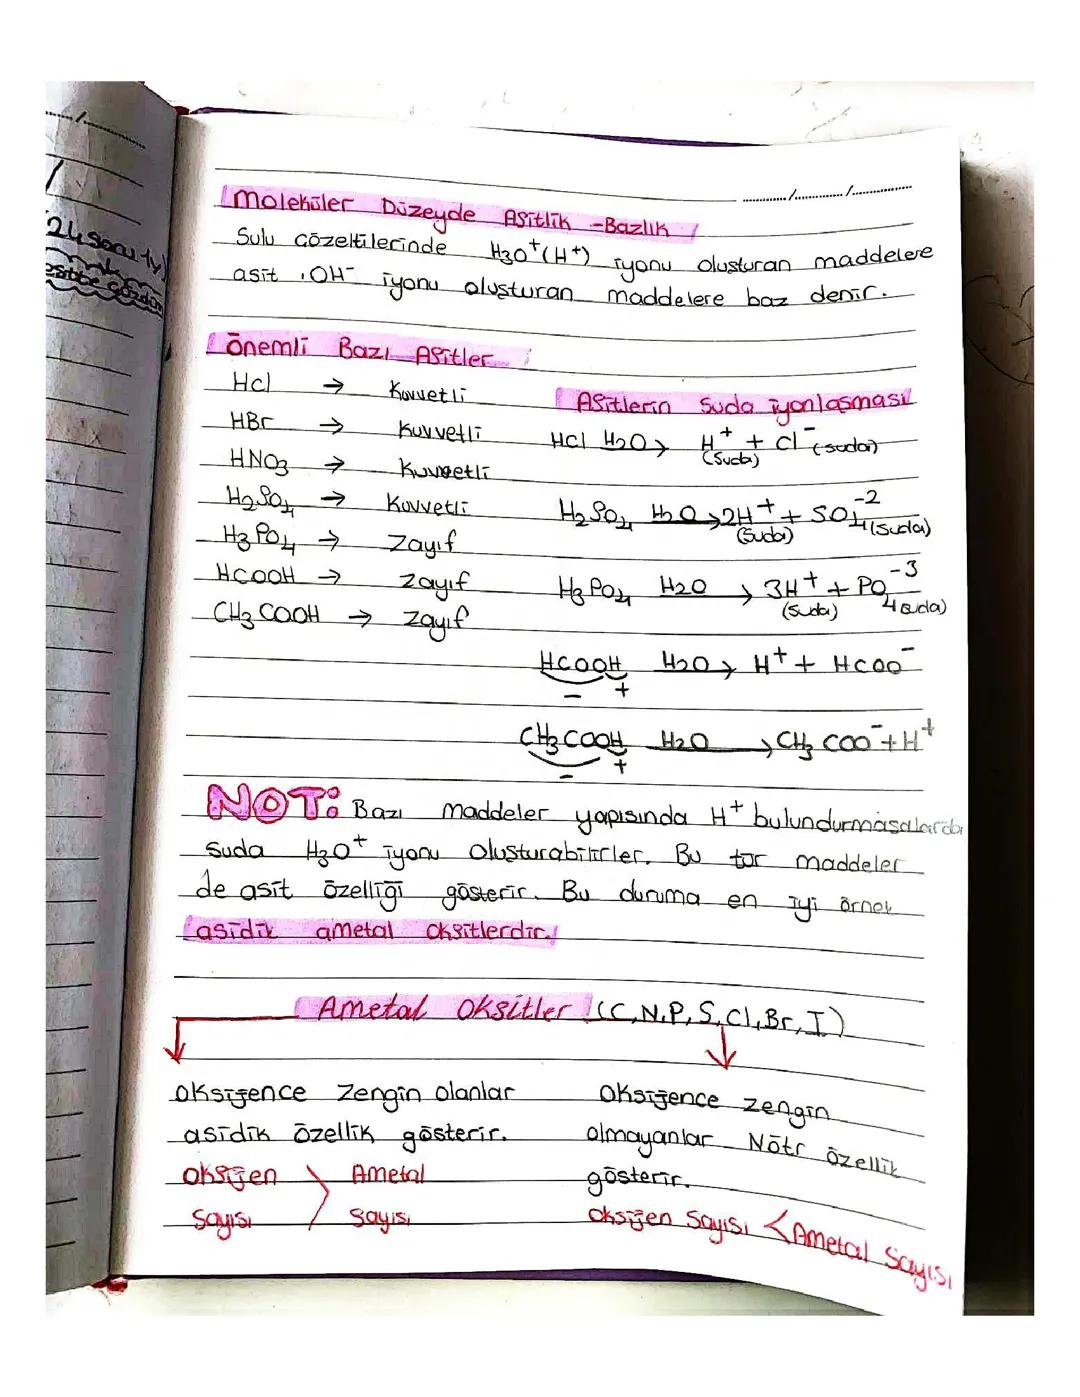 Moleküler Düzeyde Asitlik - Bazlık
Sulu çözeltilerinde H3O+(H+) iyonu oluşturan maddelere
asit, OH- iyonu oluşturan maddelere baz denir.
Önemli Bazı Asitler
HCl → Kuvvetli
HBr → Kuvvetli
HNO3 → Kuvvetli
H2SO4 → Kuvvetli
H3PO4 → Zayıf
HCOOH → Zayıf
CH3COOH → Zayıf
Asitlerin Suda iyonlaşması
HCl H2O→ H+ (suda) + Cl- (suda)
H2SO4 H2O→ 2H+ (suda) + SO4-2 (suda)
H3PO4 H2O → 3H+ (suda) + PO4-3 (suda)
HCOOH H2O→ H+ + HCOO-
- +
CH3COOH H2O → CH3COO- + H+
- +
NOT: Bazı maddeler yapısında H+ bulundurmasalarda
suda H3O+ iyonu oluşturabilirler. Bu tür maddeler
de asit özelliği gösterir. Bu duruma en iyi örnek
asidik ametal oksitlerdir.
Ametal Oksitler (C,N,P,S,Cl,Br,I)
Oksijence zengin olanlar
asidik özellik gösterir.
Oksijen sayısı > Ametal sayısı
Oksijence zengin
olmayanlar Nötr özellik
gösterir.
Oksijen Sayısı < Ametal Sayısı